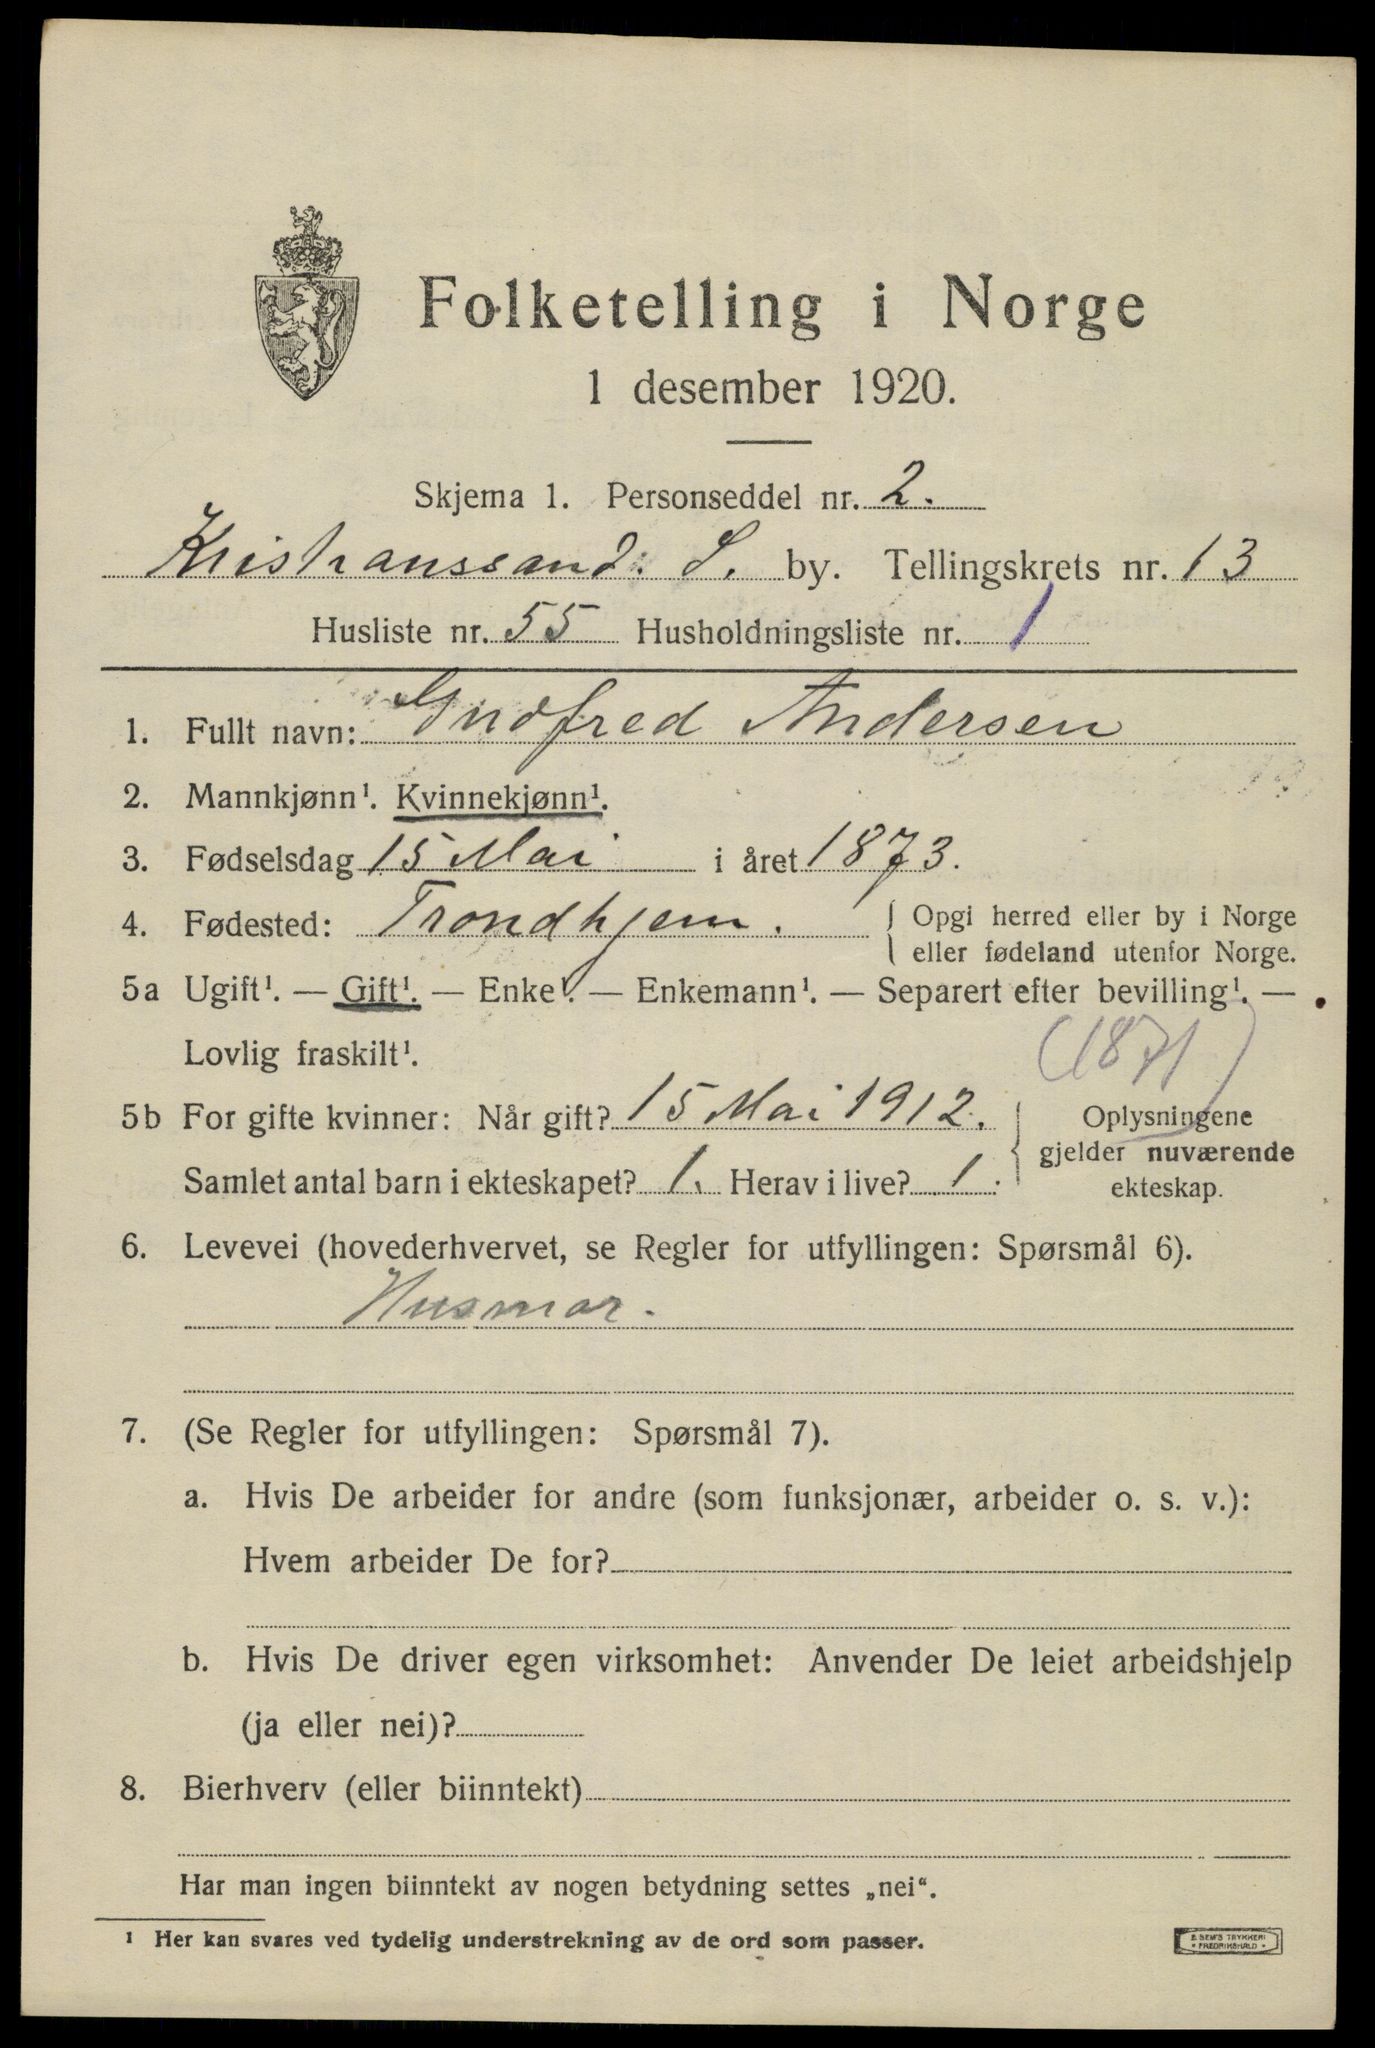 Folketelling i Norge
1 desember 1920.
Skjema 1. Personseddel nr. 2.
Kristianssand. S. by. Tellingskrets nr. 13
Husliste nr. 55 Husholdningsliste nr. 1
1. Fullt navn: Gudfred Andersen
2. Mannkjønn¹. Kvinnekjønn¹.
3. Fødselsdag 15 Mai i året 1873.
4. Fødested: Trondhjem. Opgi herred eller by i Norge
eller fødeland utenfor Norge.
5a Ugift¹. — Gift¹. — Enke¹. — Enkemann¹. — Separert efter bevilling¹. —
Lovlig fraskilt¹.
(1871)
5b For gifte kvinner: Når gift? 15 Mai 1912. Oplysningene
gjelder nuværende
Samlet antal barn i ekteskapet? 1. Herav i live? 1. ekteskap.
6. Levevei (hovederhvervet, se Regler for utfyllingen: Spørsmål 6).
Husmor.
7. (Se Regler for utfyllingen: Spørsmål 7).
a. Hvis De arbeider for andre (som funksjonær, arbeider o. s. v.):
Hvem arbeider De for?
b. Hvis De driver egen virksomhet: Anvender De leiet arbeidshjelp
(ja eller nei)?
8. Bierhverv (eller biinntekt)
Har man ingen biinntekt av nogen betydning settes „nei“.
¹ Her kan svares ved tydelig understrekning av de ord som passer.
E SEM'S TRYKKERI
• FREDRIKSHALD •